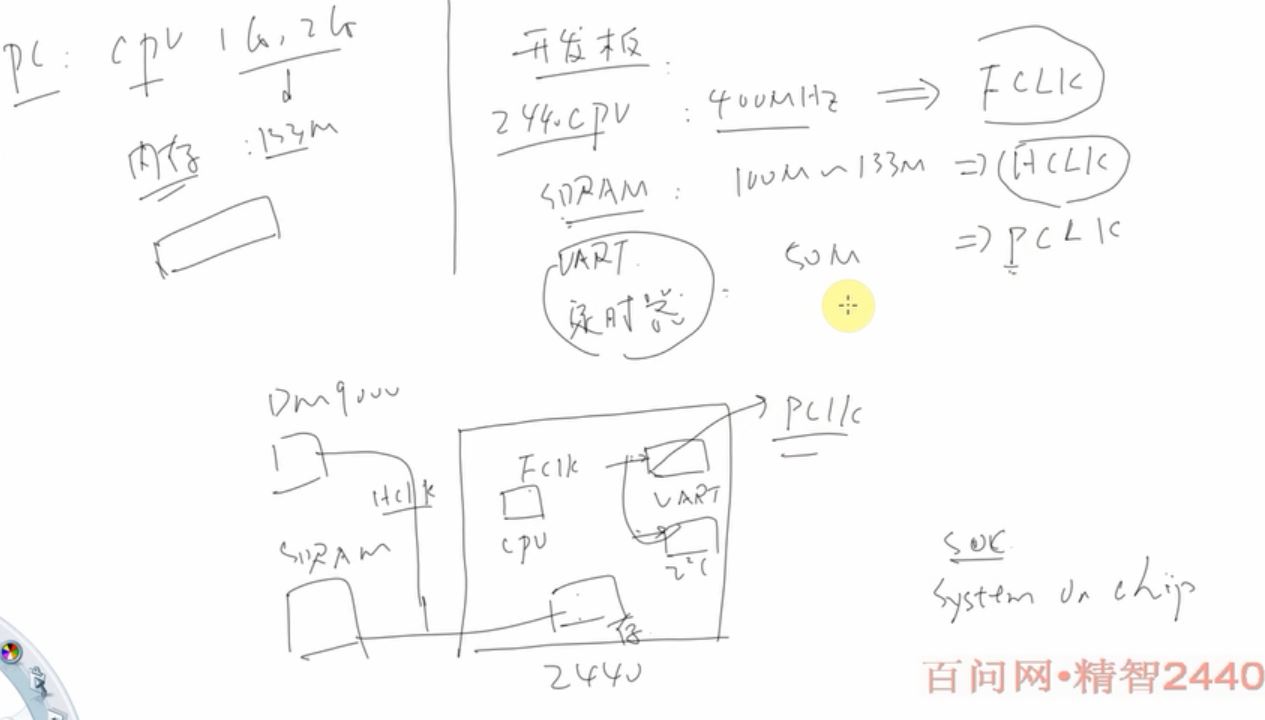 PC: CPU 1G, 2G
内存 :133M
开发板:
2440CPU : 400MHZ ⇒ FCLK
SDRAM : 100M~133M ⇒ HCLK
UART
定时器 : 50M ⇒ PCLK
DM9000
HCLK
SDRAM
FCLK
CPU
UART
I²C
存
2440
PCLK
SOC
System on chip
百问网•精智2440